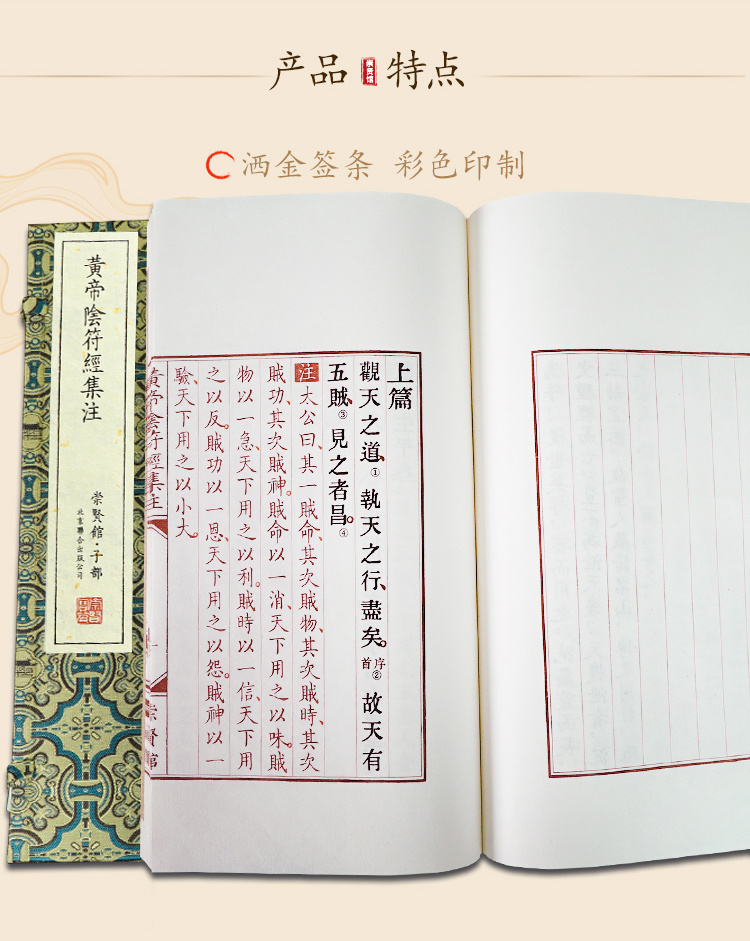 产品 崇贤馆 特点
洒金签条 彩色印制
黃帝陰符經集注
崇賢館·子部
北京聯合出版公司
上篇
觀天之道、① 執天之行、盡矣。首序② 故天有
五賊、③ 見之者昌。④
注 太公曰、其一賊命、其次賊物、其次賊時、其次
賊功、其次賊神。賊命以一消、天下用之以味。賊
物以一急、天下用之以利。賊時以一信、天下用
之以反。賊功以一恩、天下用之以怨。賊神以一
驗、天下用之以小大。
黃帝陰符經集注
一
崇賢館